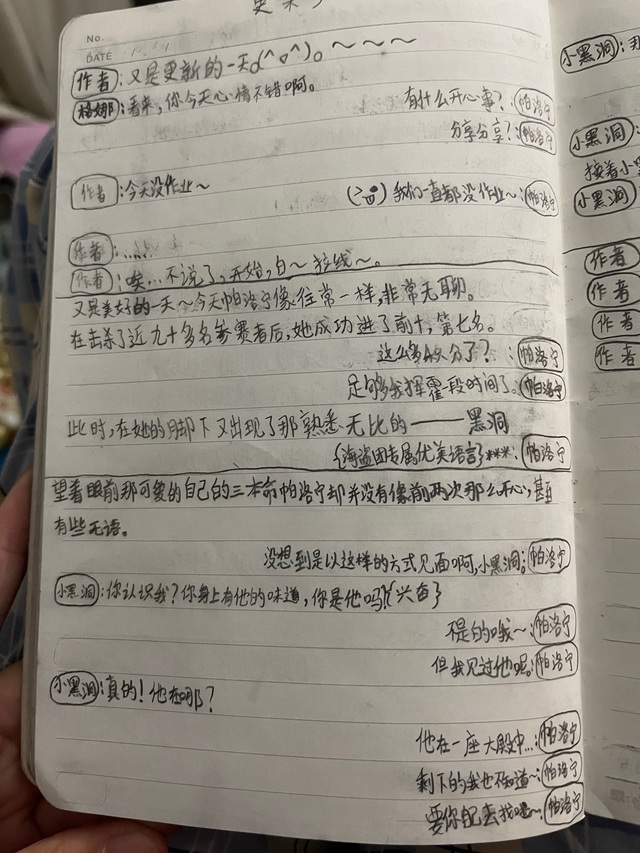 No.
DATE
作者：又是更新的一天d(^o^)。～～～
格娜：看来，你今天心情不错啊。
有什么开心事？：帕洛宁
分享分享？：帕洛宁
作者：今天没作业～
我们一直都没作业～：帕洛宁
作者：......
作者：唉...不说了，开始，白～拉线～。
又是美好的一天～今天帕洛宁像往常一样，非常无聊。
在击杀了近九十多名参赛者后，她成功进了前十，第七名。
这么多积分了？：帕洛宁
足够我挥霍一段时间了。：帕洛宁
此时，在她的脚下又出现了那熟悉无比的——黑洞
{海盗团专属优美语言}***：帕洛宁
望着眼前那可爱的自己的三本命帕洛宁却并没有像前两次那么开心，甚至
有些无语。
没想到是以这样的方式见面啊，小黑洞；帕洛宁
小黑洞：你认识我？你身上有他的味道，你是他吗？{兴奋}
不是的哦～：帕洛宁
但我见过他呢。：帕洛宁
小黑洞：真的！他在哪？
他在一座大殿中...：帕洛宁
剩下的我也不知道～：帕洛宁
要你自己去找哦～：帕洛宁
小黑洞：
小黑洞：
接着小
小黑洞
作者
作者
作者
作者